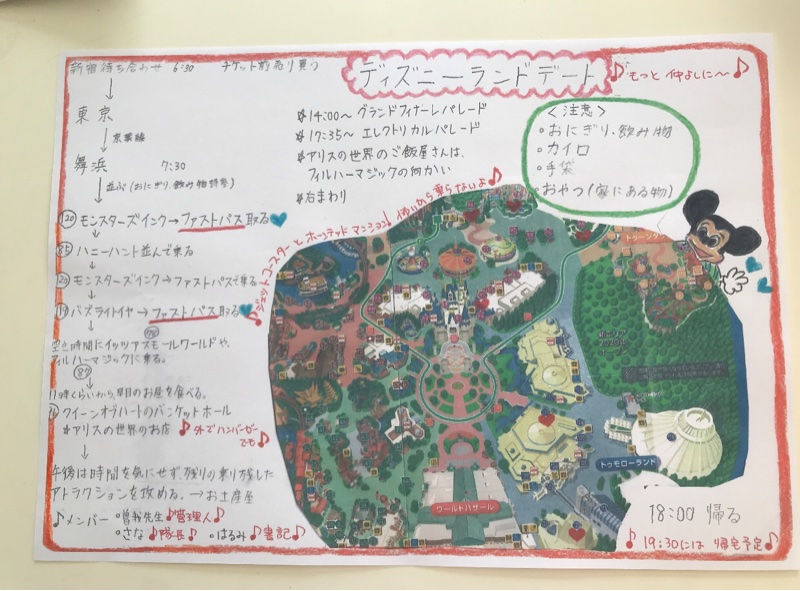 新宿待ち合わせ 6:30 チケット前売り買う
ディズニーランドデート
♪もっと仲よしに〜♪
↓
東京
↓京葉線
舞浜 7:30
↓並ぶ(おにぎり、飲み物持参)
120 モンスターズインク→ファストパス取る
↓
85 ハニーハント並んで乗る
↓
120 モンスターズインク→ファストパスで乗る
↓
バズライトイヤー→ファストパス取る
↓
空き時間にイッツアスモールワールドや、
フィルハーマジックに乗る。
↓
11時くらいから、早目のお昼を食べる。
クイーンオブハートのバンケットホール
*アリスの世界のお店 ♪外でハンバーガーでも♪
↓
午後は時間を気にせず、残りの乗り残した
アトラクションを攻める。→お土産屋
♪メンバー ・曽我先生♪管理人♪
・さな♪隊長♪ ・はるみ♪書記♪
*14:00〜 グランドフィナーレパレード
*17:35〜 エレクトリカルパレード
*アリスの世界のご飯屋さんは、
フィルハーマジックの向かい
*右まわり
<注意>
・おにぎり、飲み物
・カイロ
・手袋
・おやつ(家にある物)
♪ジェットコースターとホーンテッドマンション♪怖いから乗らないよ♪
トゥーンタウン
トゥモローランド
ワールドバザール
18:00 帰る
♪19:30には 帰宅予定♪